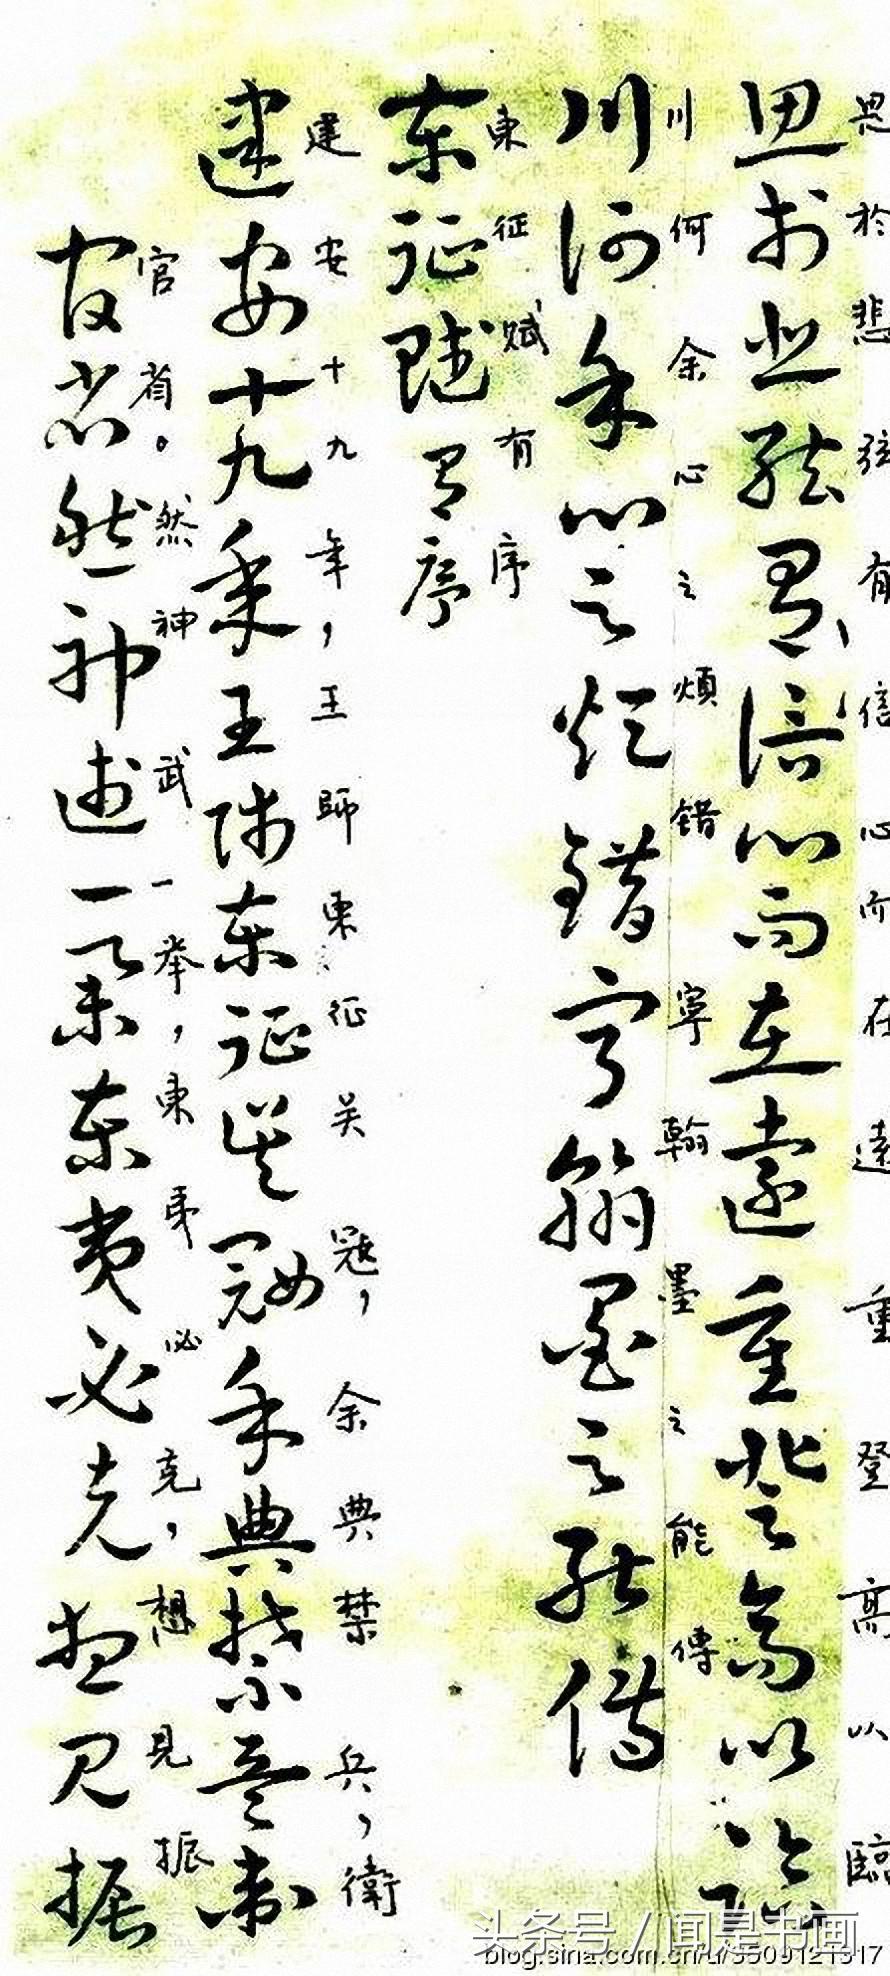 思於悲弦有信心而在遠重登高以臨
思於悲弦有信心而在遠重登高以臨
川何余心之煩錯寧翰墨之能傳
川何余心之煩錯寧翰墨之能傳
東征賦有序
東征賦有序
建安十九年王師東征吴寇余典禁兵衛
建安十九年，王師東征吴寇，余典禁兵，衛
官省然神武一舉東夷必克想見振
官省。然神武一举，東夷必克，想見振
头条号 / 闻是书画
blog.sina.com.cn/u/3509121517